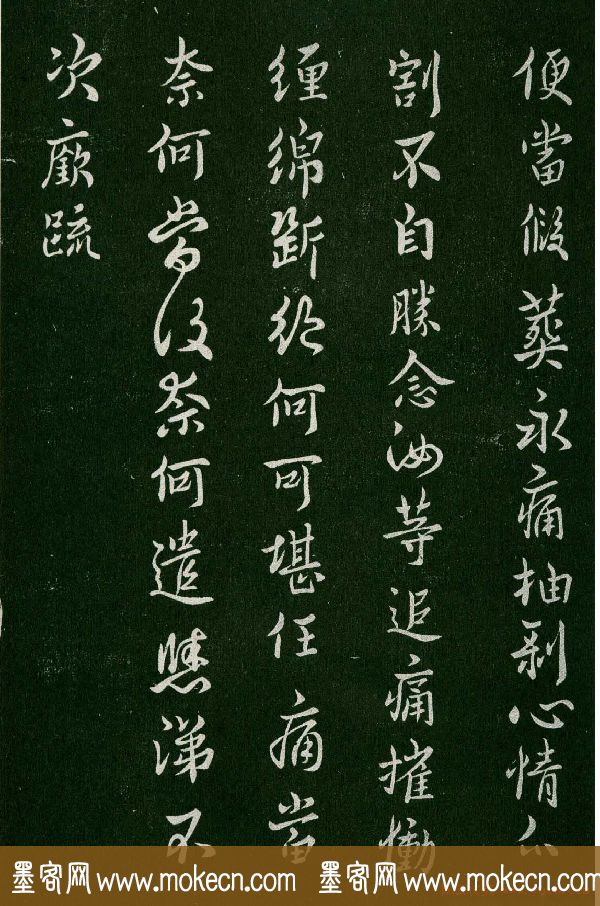 便當假葬永痛抽剥心情分
割不自勝念汝等追痛摧慟
纏綿斷絕何可堪任痛當
奈何當復奈何遣涕不
次廞疏
墨客网 www.mokecn.com 墨客网 www.mokecn.com